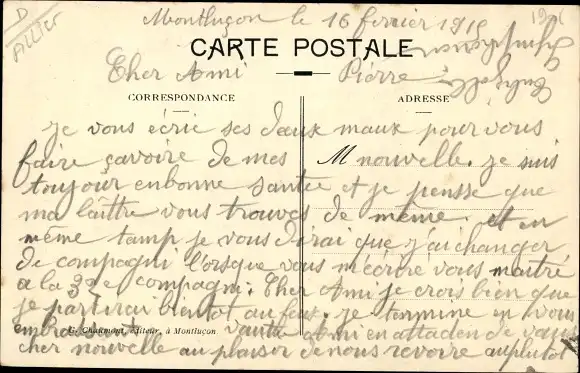 D
ALLIER
Montluçon le 16 fevrier 191
CARTE POSTALE
Cher Ami Pierre
CORRESPONDANCE ADRESSE
je vous écrie ses deux maux pour vous
faire çavoire de mes M nouvelle. je suis
toujour enbonne santée et je pensse que
ma laittre vous trouves de même. et en
même tamp je vous dirai que j'ai changer
de compagni l'orsque vous m'écrire vous maitré
a la 39e compagni. Cher Ami je crois bien que
je partirai bientot au feu. je termine en vous
G. Chaumont, éditeur, à Montluçon
embrassan Ami en attaden de vous
cher nouvelle au plaisir de nous revoire auplutot